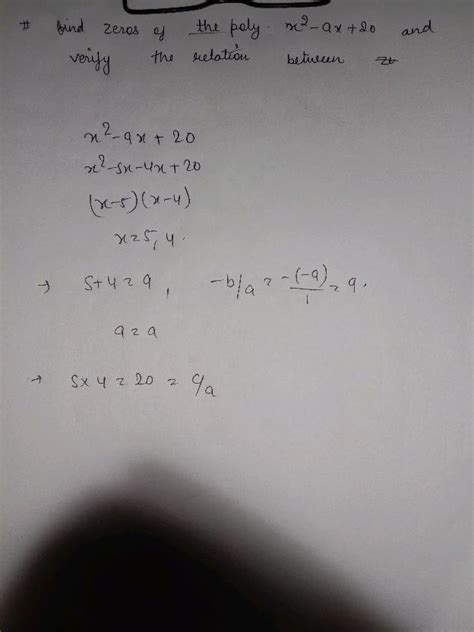 # find zeros of the poly. x²-9x+20 and
verify the relation between
x²-9x+20
x²-5x-4x+20
(x-5)(x-4)
x=5,4.
→ 5+4=9, -b/a = -(-9)/1 = 9.
9=9
→ 5×4=20=c/a